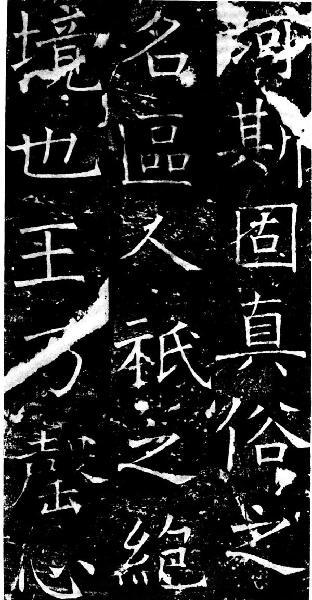 河斯固真俗之
名區人祇之絶
境也王乃罄心